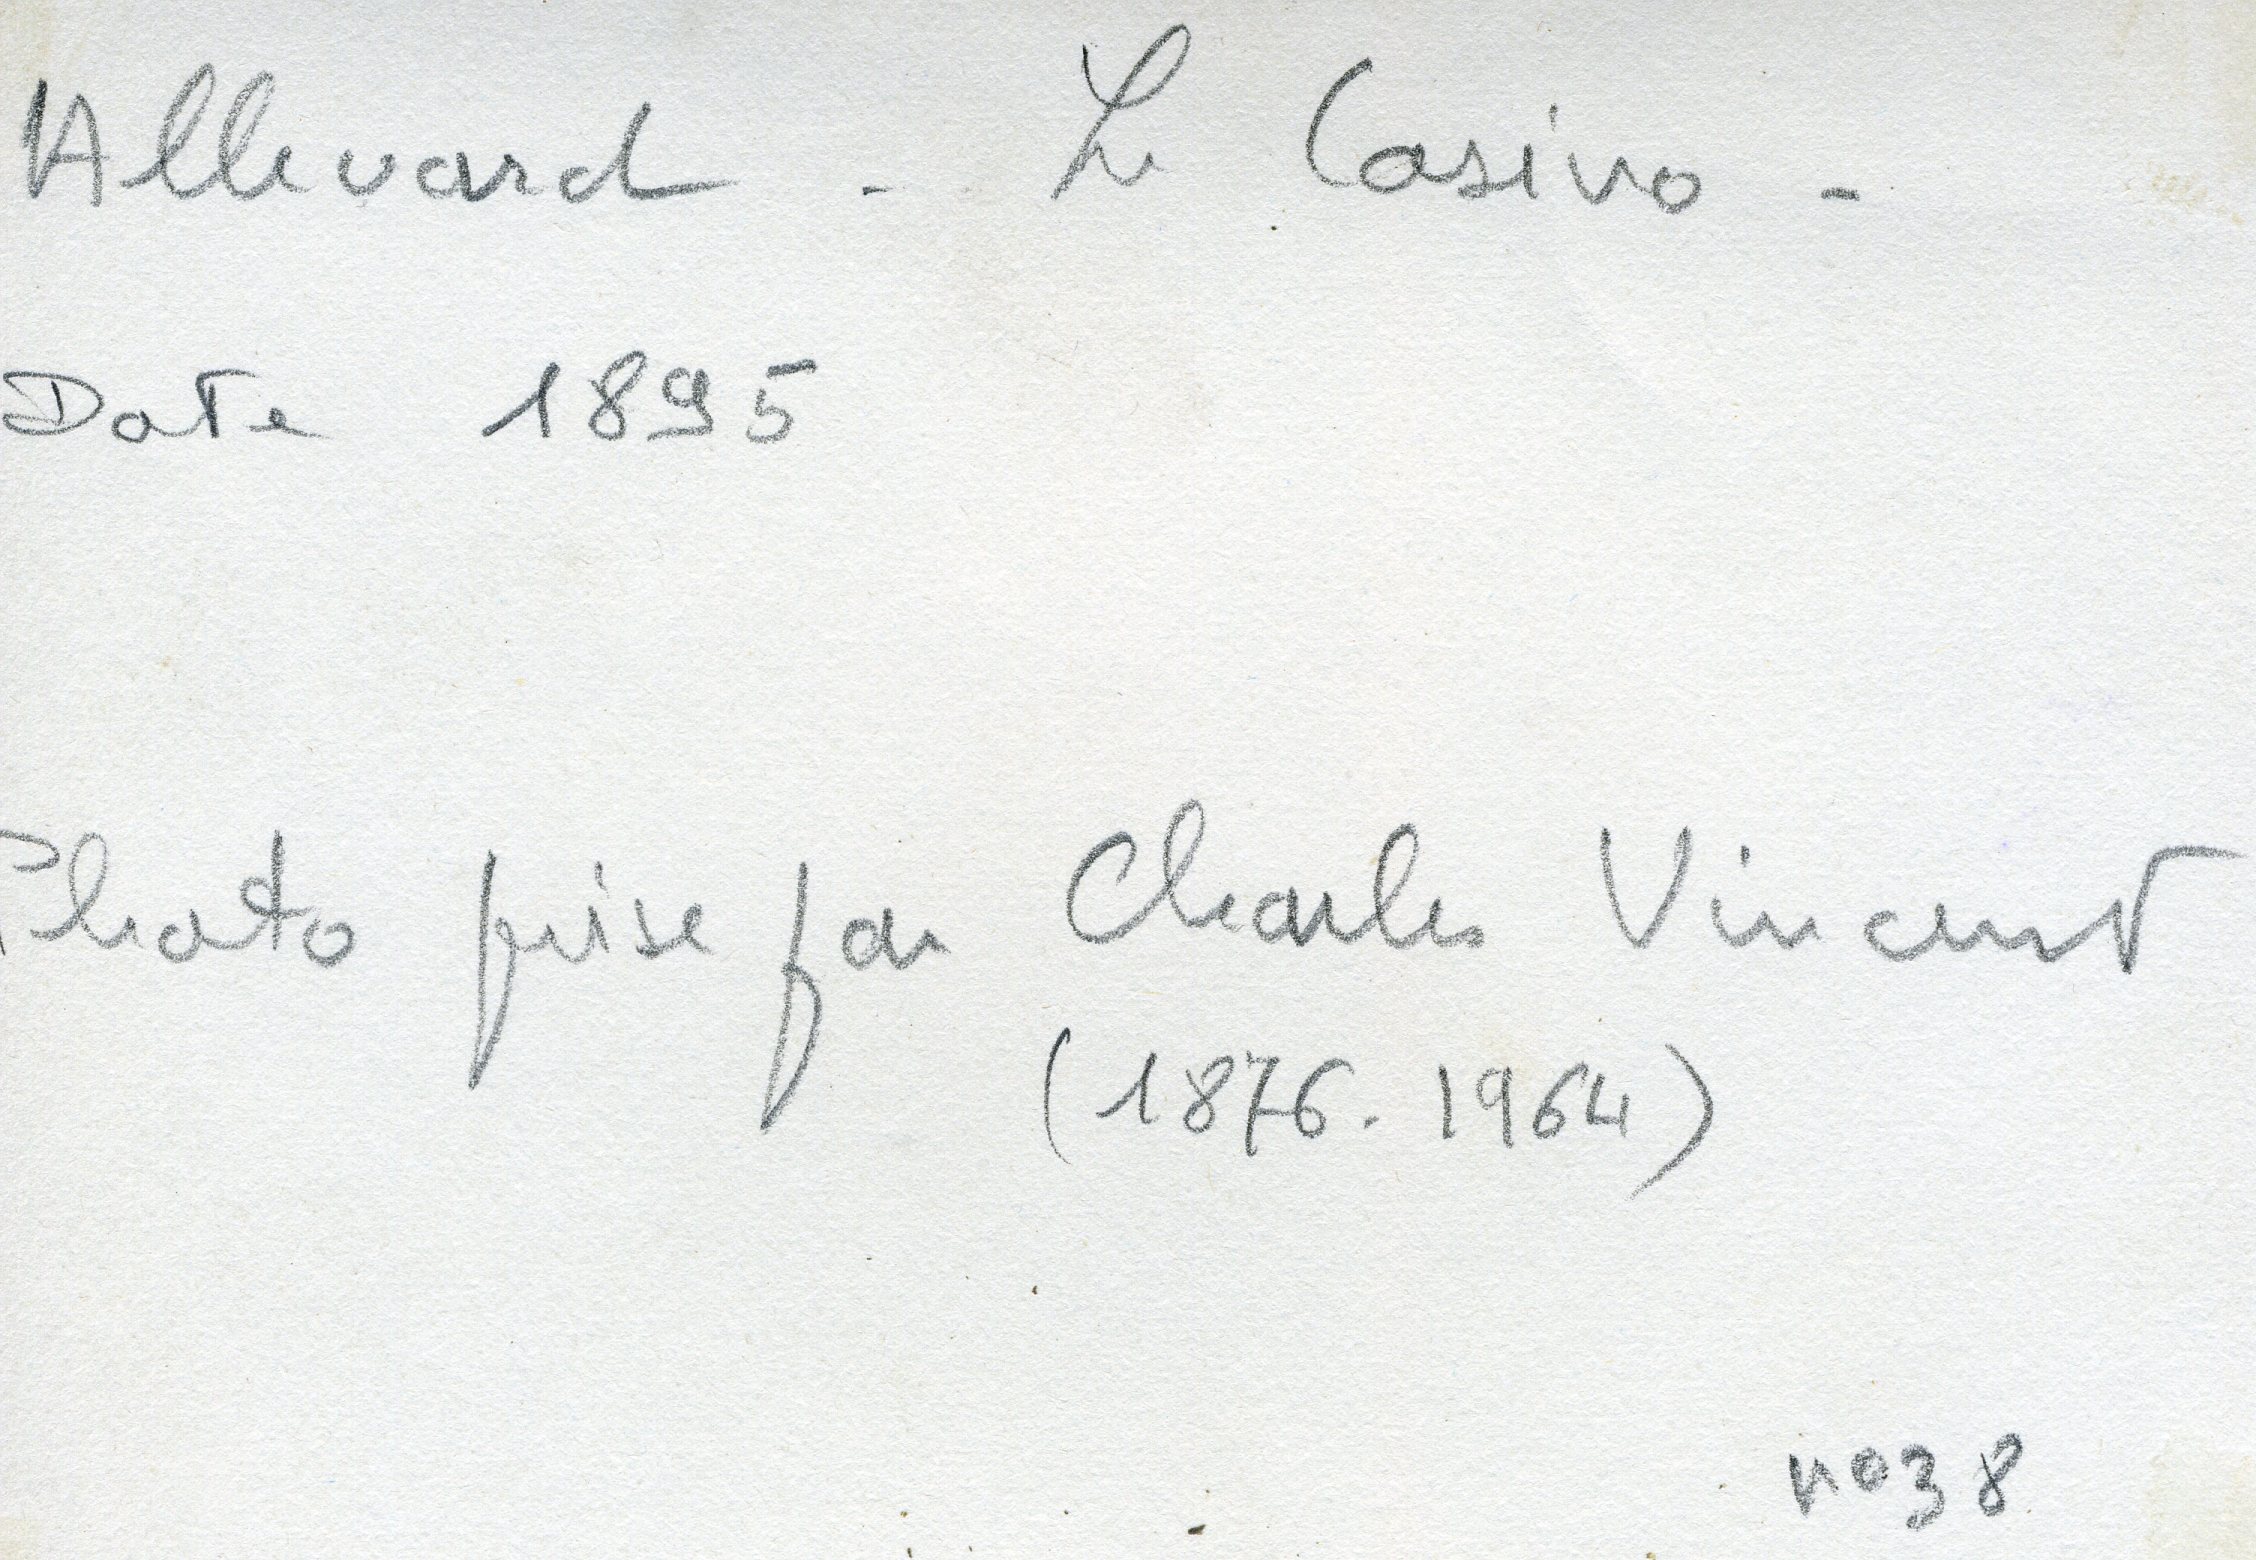 Allevard - Le Casino -
Date 1895
Photo prise par Charles Vincent
(1876-1964)
n° 38